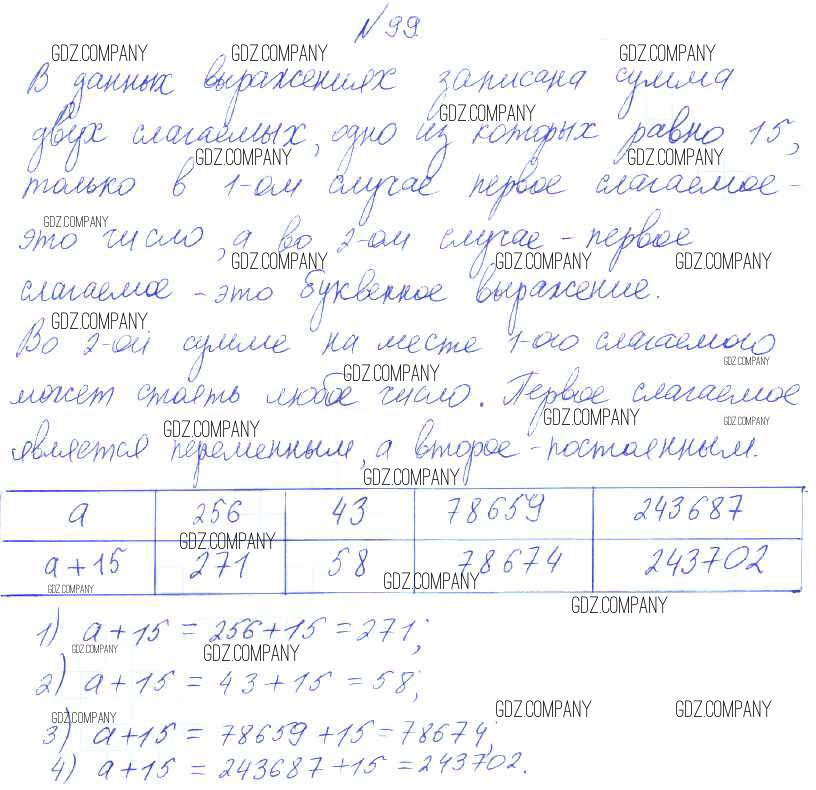 №99
GDZ.COMPANY GDZ.COMPANY GDZ.COMPANY
В данных выражениях записана сумма
GDZ.COMPANY
двух слагаемых, одно из которых равно 15,
GDZ.COMPANY GDZ.COMPANY
только в 1-ом случае первое слагаемое -
GDZ.COMPANY
это число, а во 2-ом случае - первое
GDZ.COMPANY GDZ.COMPANY GDZ.COMPANY
слагаемое - это буквенное выражение.
GDZ.COMPANY
Во 2-ой сумме на месте 1-ого слагаемого
GDZ.COMPANY GDZ.COMPANY
может стоять любое число. Первое слагаемое
GDZ.COMPANY GDZ.COMPANY GDZ.COMPANY
является переменным, а второе - постоянным.
GDZ.COMPANY
a 256 43 78659 243687
GDZ.COMPANY
a+15 271 58 78674 243702
GDZ.COMPANY GDZ.COMPANY
GDZ.COMPANY
1) a+15 = 256+15 = 271;
GDZ.COMPANY GDZ.COMPANY
2) a+15 = 43+15 = 58;
GDZ.COMPANY GDZ.COMPANY GDZ.COMPANY
3) a+15 = 78659+15=78674;
4) a+15 = 243687+15 = 243702.